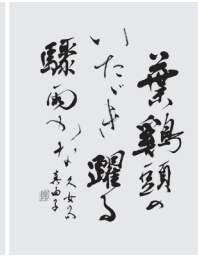 葉鶏頭の
いたゞき躍る
驟雨かな
久女の句
真由子